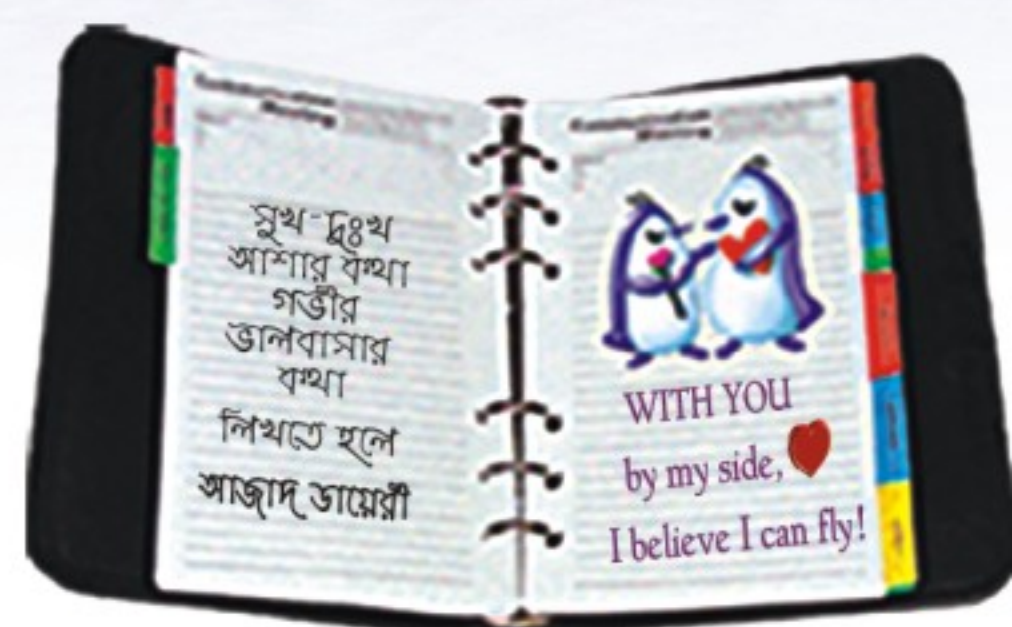 সুখ-দুঃখ
আশার কথা
গভীর
ভালবাসার
কথা
লিখতে হলে
আজাদ ডায়েরী
WITH YOU
by my side,
I believe I can fly!